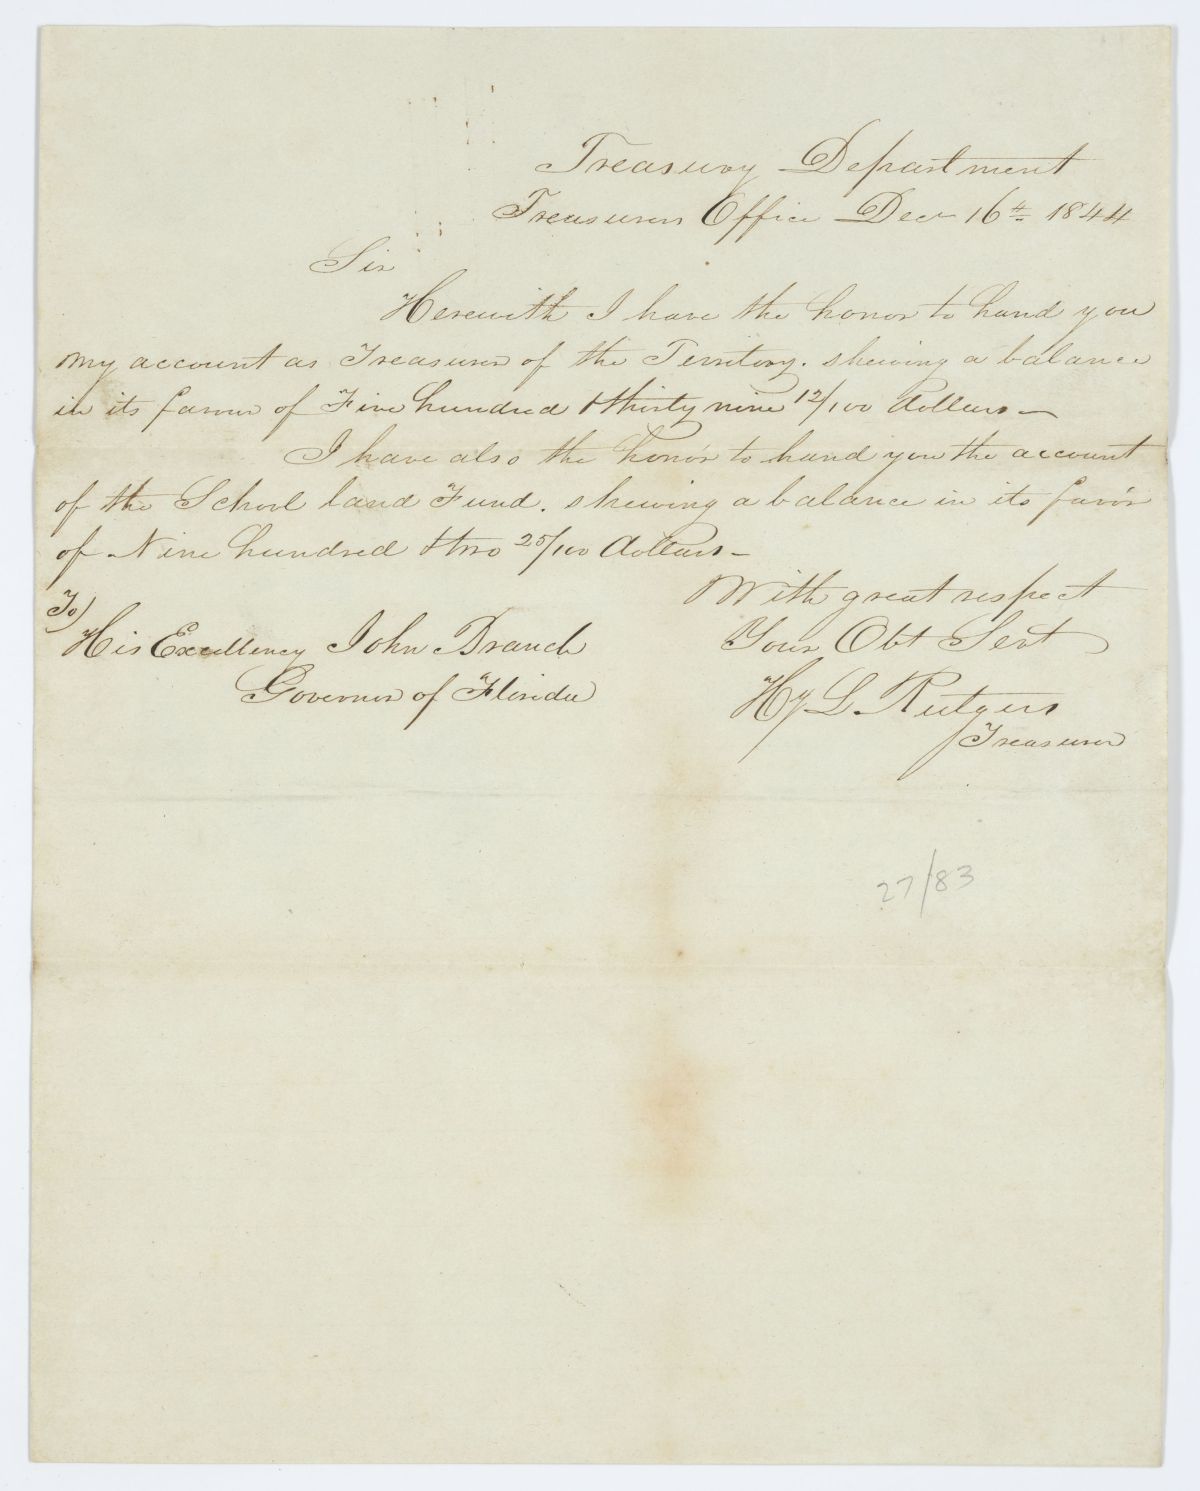 Treasury Department
Treasurers Office Decr 16th 1844
Sir
Herewith I have the honor to hand you
my account as Treasurer of the Territory. shewing a balance
in its favour of Five hundred & thirty nine 12/100 dollars—
I have also the honor to hand you the account
of the School land Fund. shewing a balance in its favor
of Nine hundred & two 25/100 dollars—
With great respect
Your Obt Servt
Hy L. Rutgers
Treasurer
To)
His Excellency John Branch
Governor of Florida
27/83